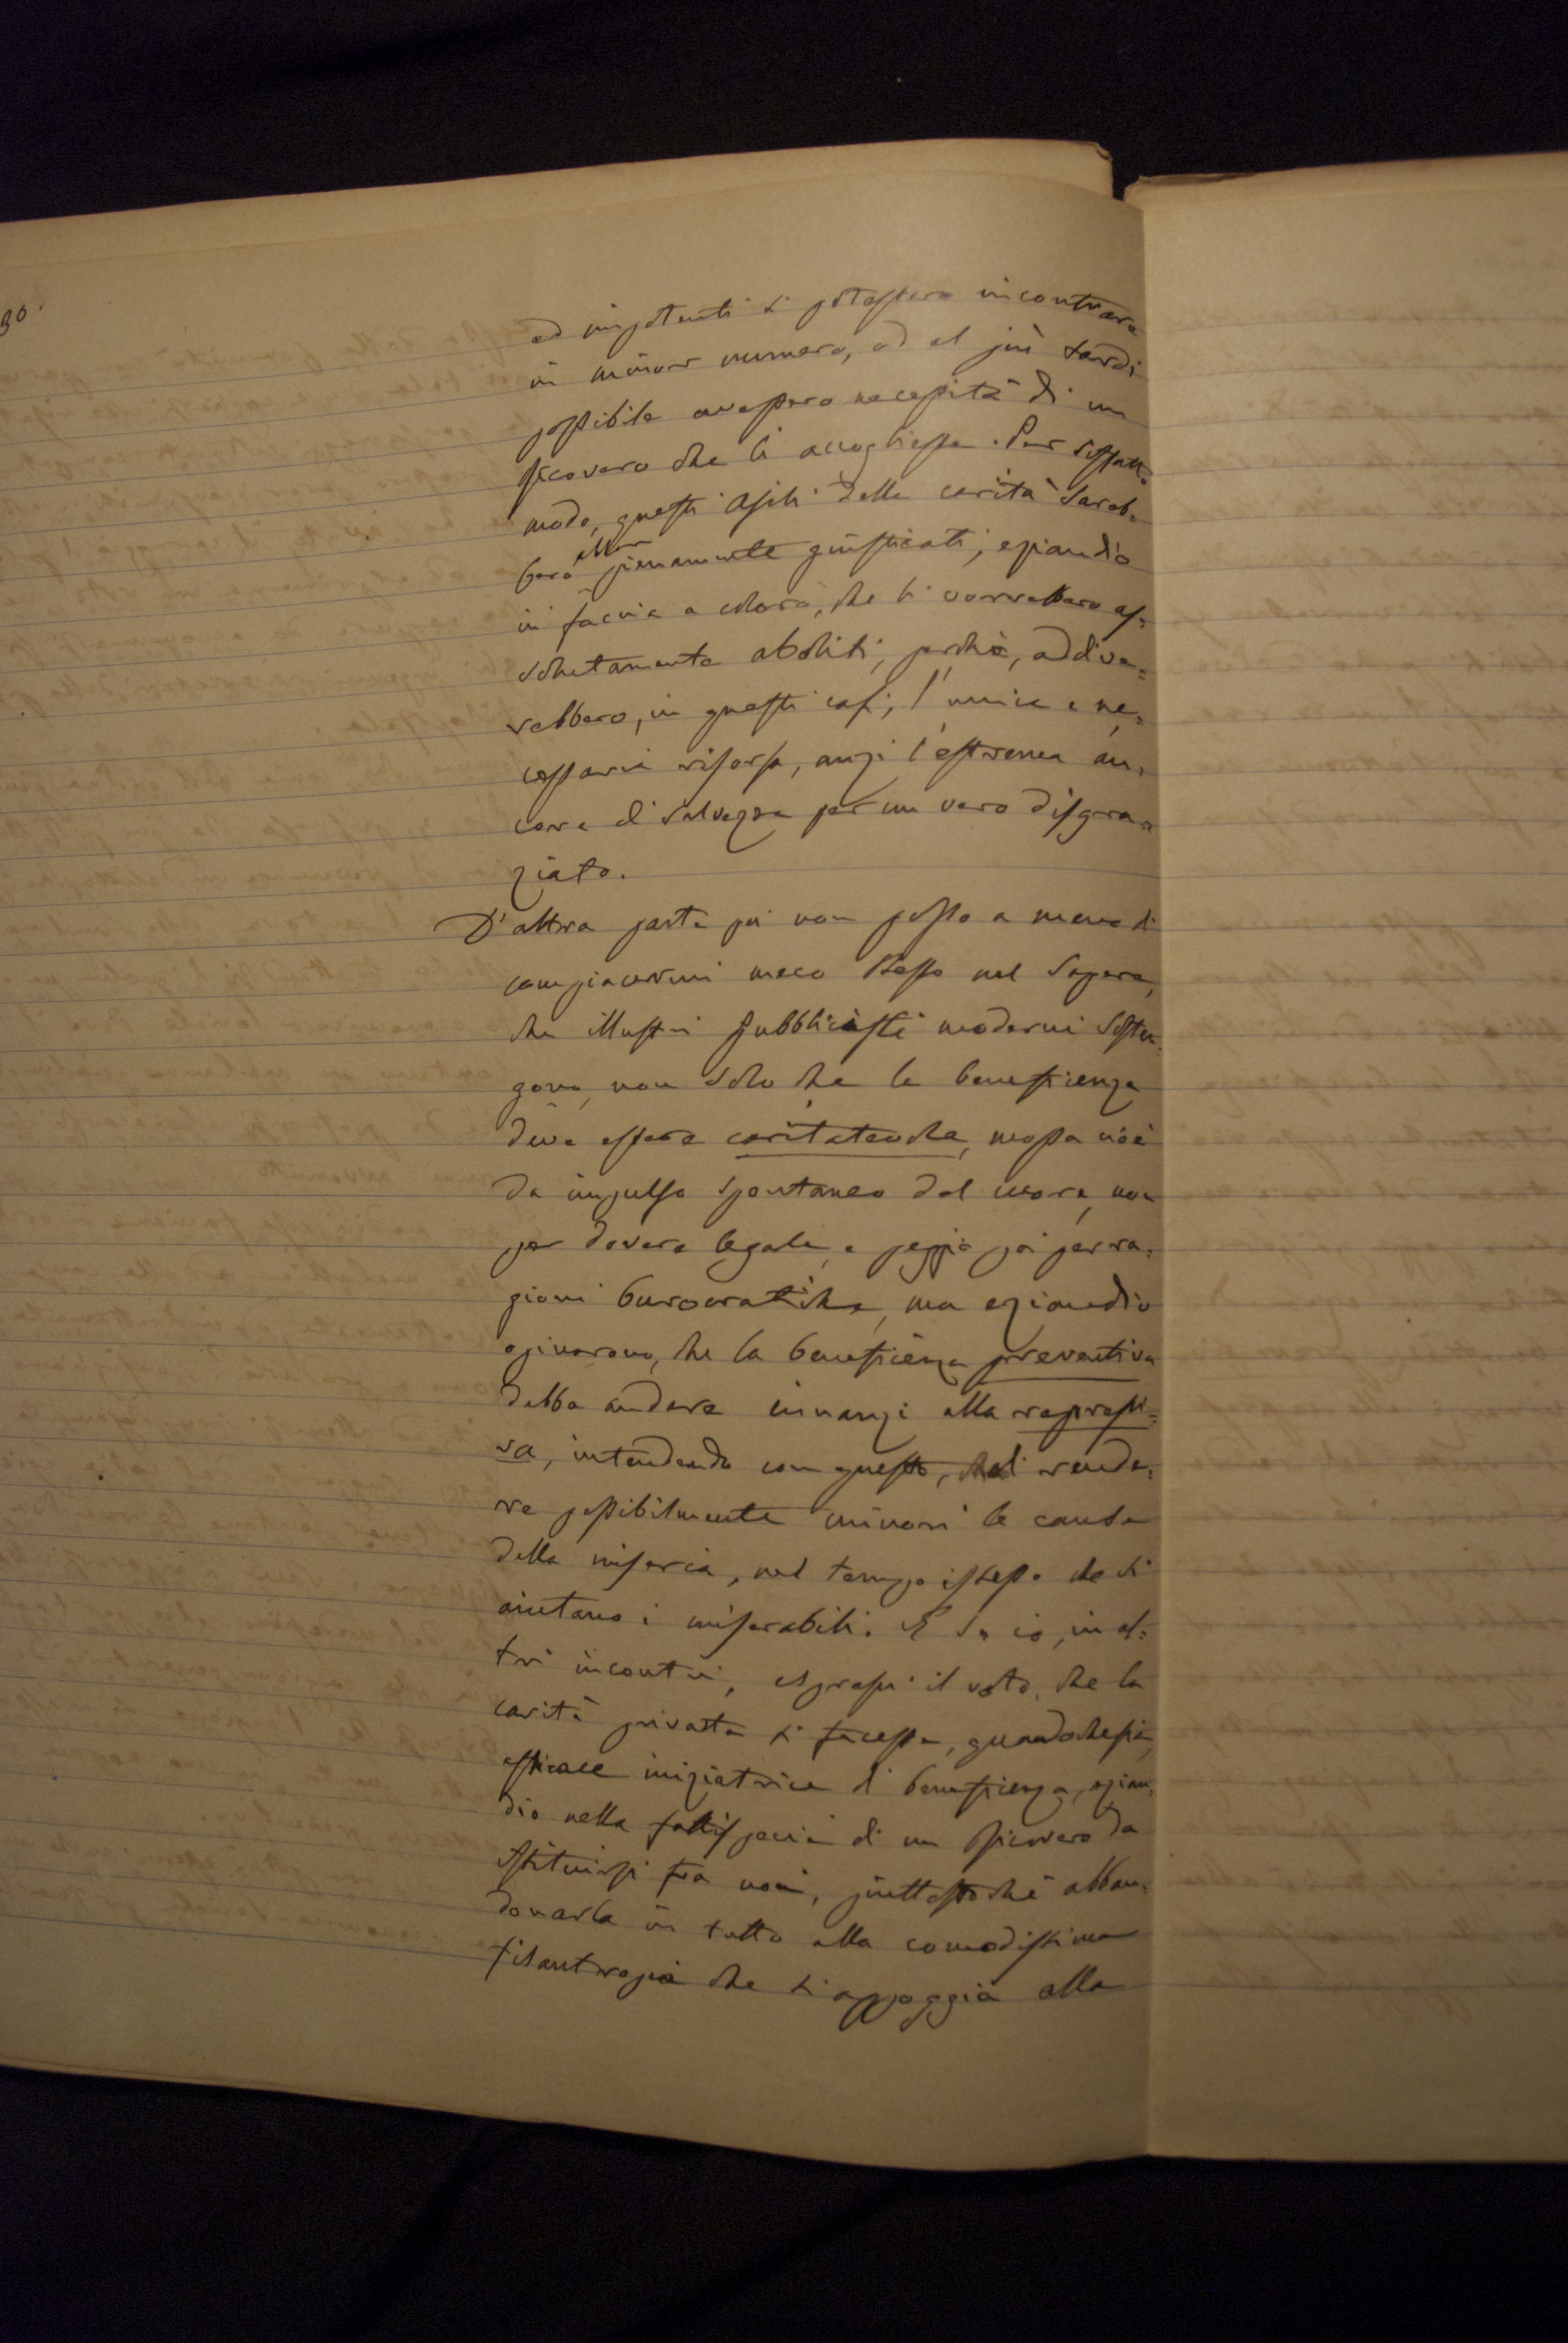 30.
ed impotenti si potessero incontrare
in minor numero, od al più tardi
possibile avessero necessità di un
Ricovero che li accogliesse. Per siffatto
modo, questi Asili della carità sareb=
bero allora pienamente giustificati, eziandio
in faccia a coloro, che li vorrebbero as=
solutamente aboliti, perchè, addive=
rebbero, in questi casi, l'unica e ne=
cessaria risorsa, anzi l'estrema àn=
cora di salvezza per un vero disgra=
ziato.
D'altra parte poi non posso a meno di
compiacermi meco stesso nel sapere,
che illustri pubblicisti moderni sosten=
gono, non solo che la beneficenza
deve essere caritatevole, mossa cioè
da impulso spontaneo del cuore, non
per dovere legale, e peggio poi per ra=
gioni burocratiche, ma eziandio
opinarono, che la beneficenza preventiva
debba andare innanzi alla repressi=
va, intendendo con questo, di rende=
re possibilmente minori le cause
della miseria, nel tempo istesso che si
aiutano i miserabili. E se io, in al=
tri incontri, espressi il voto, che la
carità privata si facesse, quandochesia,
efficace iniziatrice di beneficenza, ezian=
dio nella fattispecie di un Ricovero da
istituirsi fra noi, piuttostochè abban=
donarla in tutto alla comodissima
filantropia che s'appoggia alla